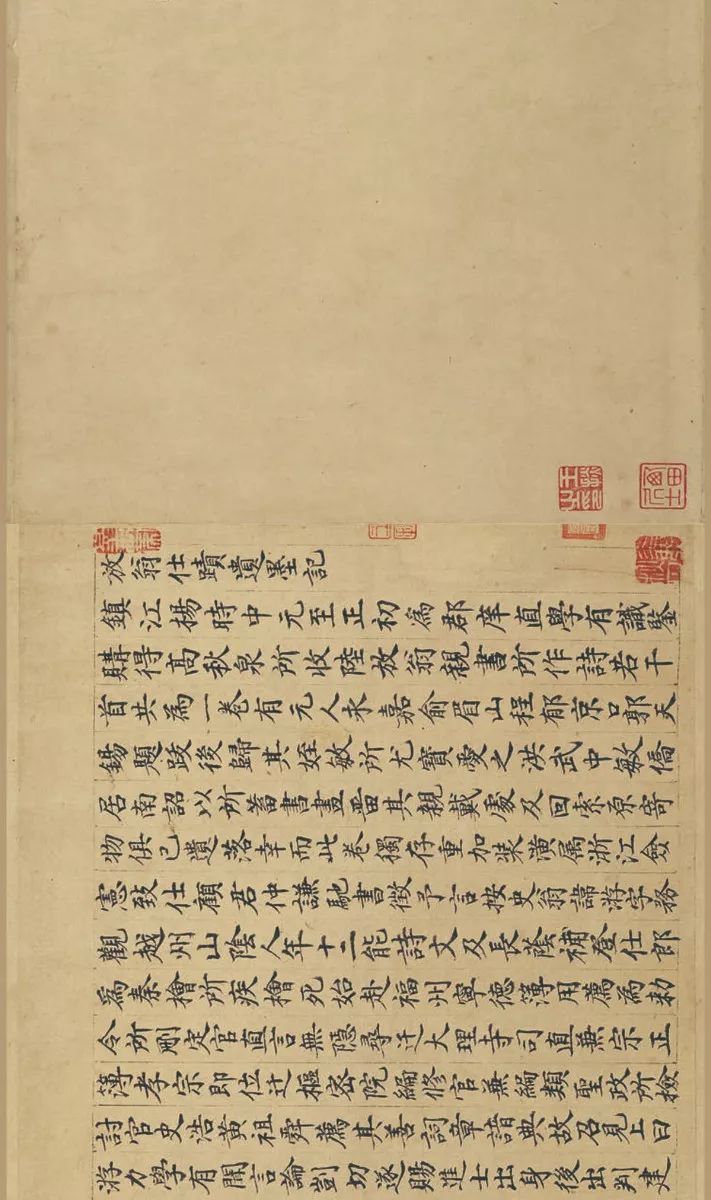 放翁仕蹟遺墨記
鎮江楊時中元至正初為郡庠直學有識鑒
購得高秋泉所收陸放翁親書所作詩若干
首共為一卷有元人永嘉俞眉山程郁京口郭天
錫題跋後歸其姪敏所尤寶愛之洪武中敏僑
居南詔以所蓄書畫畱其親戴處及回索原寄
物俱已遺落幸而此卷獨存重加裝潢属浙江僉
憲致仕顧君仲謙馳書徵予言按史翁諱游字務
觀越州山陰人年十二能詩文及長蔭補登仕郎
為秦檜所疾檜死始赴福州寧德簿用薦為勑
令所刪定官直言無隱尋迁大理寺司直兼宗正
簿孝宗即位迁樞密院編修官兼編類聖政所檢
討官史浩黄祖舜薦其善詞章諳典故召見上曰
游力學有聞言論剴切遂賜進士出身後出判建